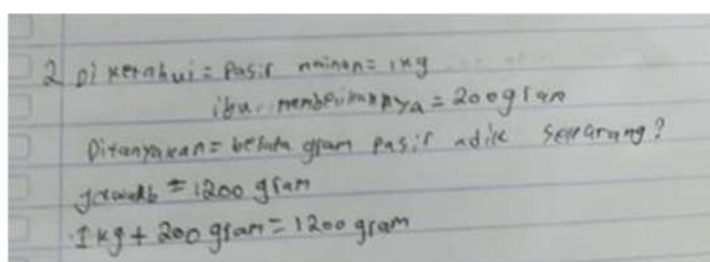 2 Diketahui = Pasir mainan = 1kg
ibu memberikannya = 200 gram
Ditanyakan = berapa gram pasir adik sekarang?
jawab = 1200 gram
1 kg + 200 gram = 1200 gram